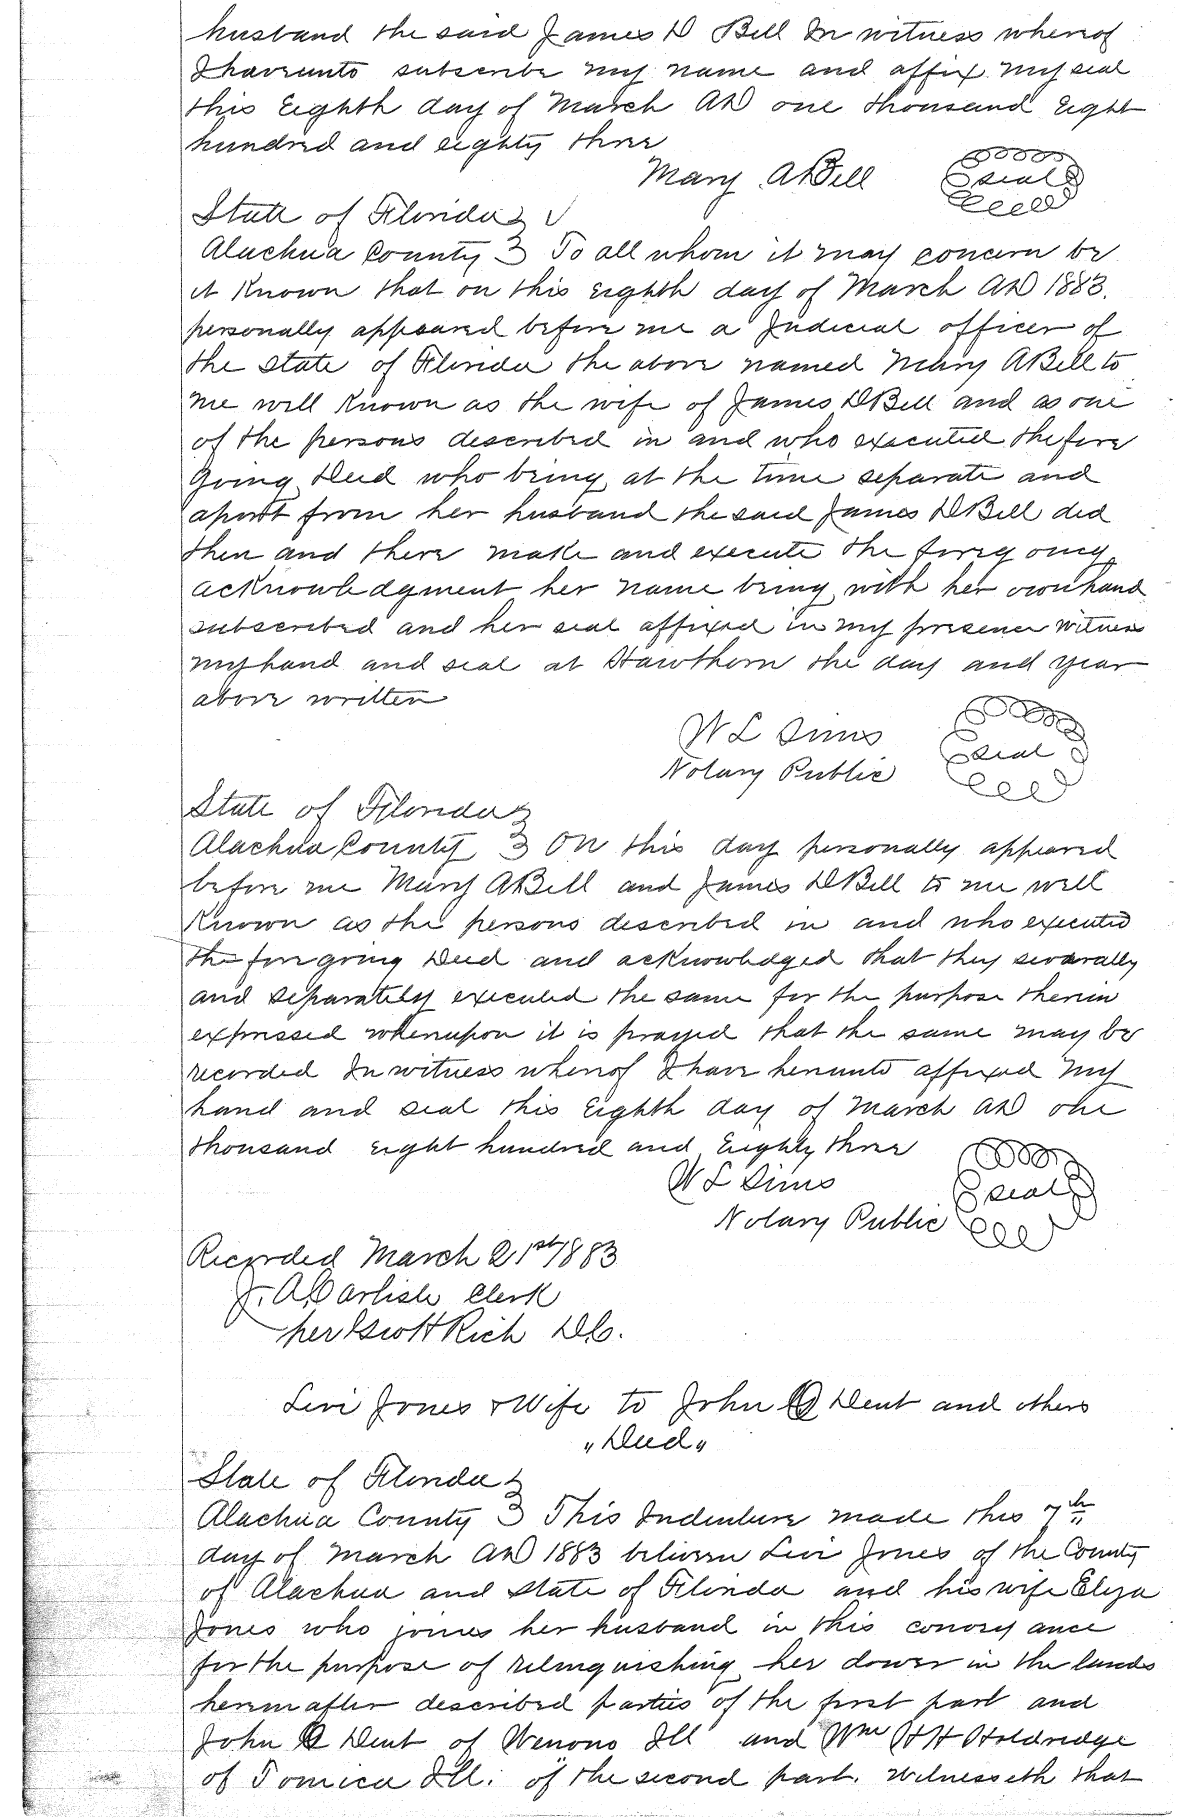 husband the said James D Bell In witness whereof
I haveunto subscribe my name and affix my seal
this Eighth day of March AD one thousand Eight
hundred and eighty three
Mary A Bell
Seal
State of Florida
Alachua County 3 To all whom it may concern be
it Known that on this eighth day of March AD 1883.
personally appeared before me a Judicial officer of
the State of Florida the above named Mary A Bell to
me well Known as the wife of James D Bell and as one
of the persons described in and who executed the fore
going Deed who being at the time separate and
apart from her husband the said James D Bell did
then and there make and execute the foregoing
acknowledgment her name being with her own hand
subscribed and her seal affixed in my presence Witness
my hand and seal at Hawthorn the day and year
above written
W L Sims
Seal
Notary Public
State of Florida
Alachua County 3 On this day personally appeared
before me Mary A Bell and James D Bell to me well
Known as the persons described in and who executed
the foregoing Deed and acknowledged that they severally
and separately executed the same for the purpose therein
expressed whereupon it is prayed that the same may be
recorded In witness whereof I have hereunto affixed my
hand and seal this Eighth day of March AD one
thousand eight hundred and Eighty three
W L Sims
Seal
Notary Public
Recorded March 21st 1883
J. A Carlisle Clerk
per Scott Rich D C.
Levi Jones & Wife to John Dent and others
"Deed"
State of Florida
Alachua County 3 This Indenture made this 7th
day of March AD 1883 between Levi Jones of the County
of Alachua and State of Florida and his wife Eliza
Jones who joines her husband in this conveyance
for the purpose of relinquishing her dower in the lands
hereinafter described parties of the first part and
John Dent of Wenono Ill and Wm H H Holdridge
of Tonica Ill. of the second part. Witnesseth that